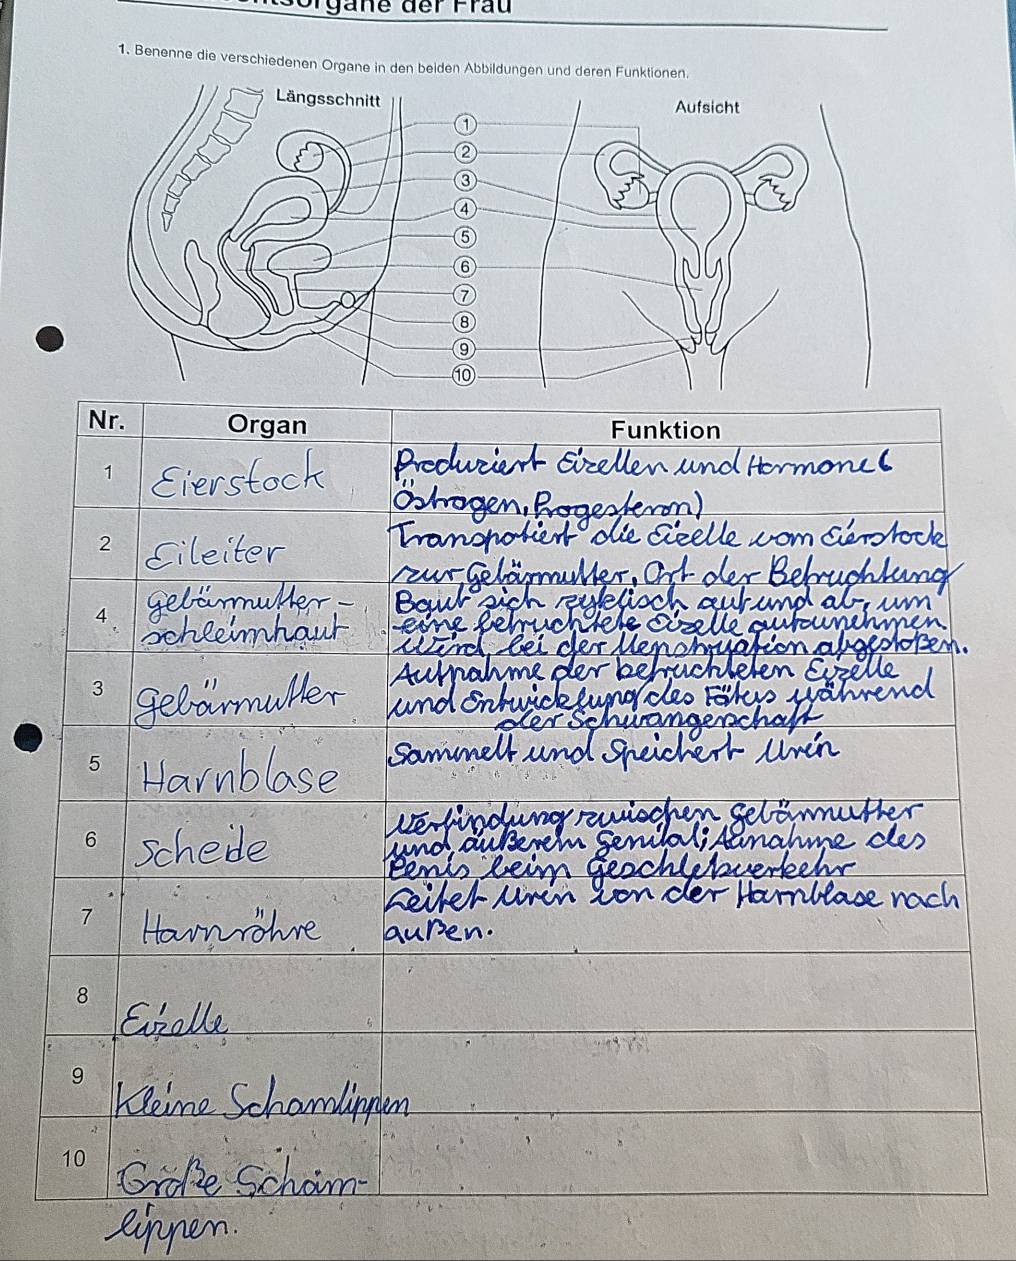 organe der Frau
1. Benenne die verschiedenen Organe in den beiden Abbildungen und deren Funktionen.
Längsschnitt
Aufsicht
1
2
3
4
5
6
7
8
9
10
Nr. Organ Funktion
1 Eierstock Produziert Eizellen und Hormone (
Östrogen, Progesteron)
2 Eileiter Transpotiert die Eizelle vom Eierstock
zur Gebärmutter, Ort der Befruchtung
4 gebärmutter- Baut sich zyklisch auf und ab, um
schleimhaut eine befruchtete Eizelle aufzunehmen.
Wird bei der Menstruation abgestoßen.
3 gebärmutter Aufnahme der befruchteten Eizelle
und Entwicklung des Fötus während
der Schwangerschaft
5 Harnblase Sammelt und speichert Urin
6 Scheide Verbindung zwischen gebärmutter
und äußerem Genital; Aufnahme des
Penis beim geschlehtverkehr
7 Harnröhre Leitet Urin von der Harnblase nach
außen.
8 Eizelle
9 Kleine Schamlippen
10 Große Scham-
lippen.